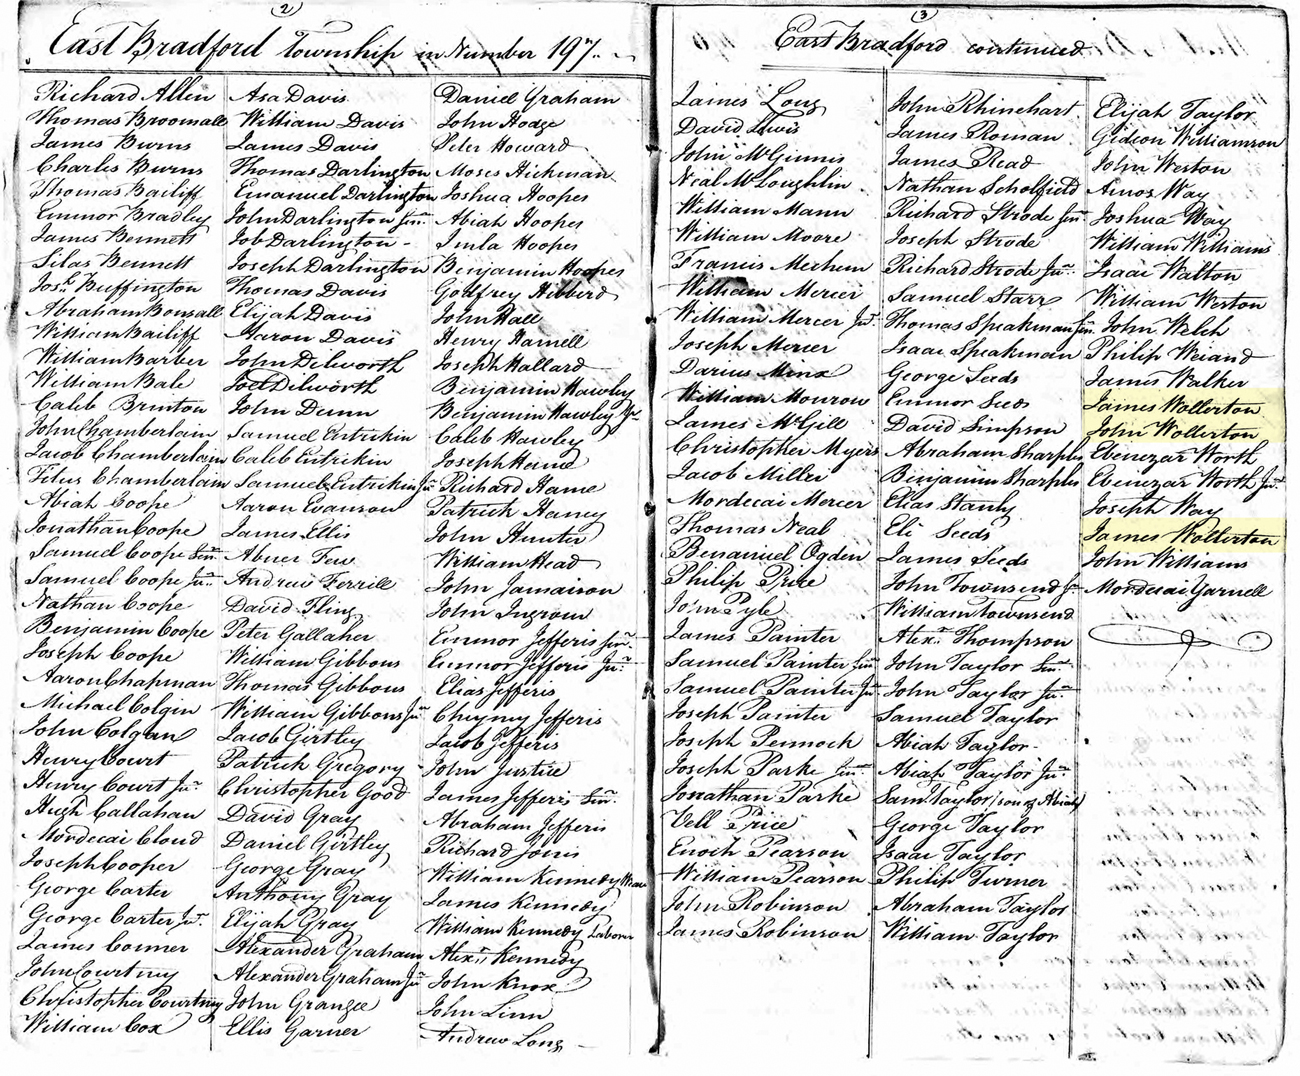 2
East Bradford Township in Number 197
Richard Allen
Thomas Broomall
James Burns
Charles Burns
Thomas Bailiff
Emmor Bradley
James Bennett
Silas Bennett
Josh. Buffington
Abraham Bonsall
William Bailiff
William Barber
William Bale
Caleb Brinton
John Chamberlain
Jacob Chamberlain
Titus Chamberlain
Abiah Coope
Jonathan Coope
Samuel Coope Senr.
Samuel Coope Junr.
Nathan Coope
Benjamin Coope
Joseph Coope
Aaron Chapman
Michael Colgin
John Colgan
Henry Court
Henry Court Jur.
Hugh Callahan
Mordecai Cloud
Joseph Cooper
George Carter
George Carter Jur.
James Conner
John Courtney
Christopher Courtney
William Cox
Asa Davis
William Davis
James Davis
Thomas Darlington
Emanuel Darlington
John Darlington Senr.
Job Darlington
Joseph Darlington
Thomas Davis
Elijah Davis
Aaron Davis
John Dilworth
Joel Dilworth
John Dunn
Samuel Entrikin
Caleb Entrikin
Samuel Entrikin Jur
Aaron Evanson
James Ellis
Abner Few
Andrew Ferrill
David Fling
Peter Gallaher
William Gibbons
Thomas Gibbons
William Gibbons Jur
Jacob Girtley
Patrick Gregory
Christopher Good
David Gray
Daniel Girtley
George Gray
Anthony Gray
Elijah Gray
Alexander Graham
Alexander Graham Jur
John Grangee
Ellis Garner
Daniel Graham
John Hodge
Peter Howard
Moses Hickman
Joshua Hoopes
Abiah Hoopes
Imla Hoopes
Benjamin Hoopes
Godfrey Hibberd
John Hall
Henry Harnell
Joseph Hallard
Benjamin Hawley
Benjamin Hawley Jr
Caleb Hawley
Joseph Hame
Richard Hame
Patrick Haney
John Hunter
William Head
John Jamaison
John Ingrom
Emmor Jefferis Senr.
Emmor Jefferis Jur.
Elias Jefferis
Cheyney Jefferis
Jacob Jefferis
John Justice
James Jefferis Senr.
Abraham Jefferis
Richard Jones
William Kennedy Weav
James Kennedy
William Kennedy Laborer
Alexr. Kennedy
John Knox
John Linn
Andrew Long
3
East Bradford continued
James Long
David Lewis
John McGinnis
Neal McLoughlin
William Mann
William Moore
Francis Merhem
William Mercer
William Mercer Jur.
Joseph Mercer
Darius Minx
William Monrow
James McGill
Christopher Myers
Jacob Miller
Mordecai Mercer
Thomas Neal
Benanuel Ogden
Philip Price
John Pyle
James Painter
Samuel Painter Senr
Samuel Painter Jur
Joseph Painter
Joseph Pennock
Joseph Parke Senr.
Jonathan Parke
Vell Price
Enoch Pearson
William Pearson
John Robinson
James Robinson
John Rhinehart
James Roman
James Read
Nathan Scholfield
Richard Strode Senr
Joseph Strode
Richard Strode Jur.
Samuel Starr
Thomas Speakman Sen.
Isaac Speakman
George Seeds
Emmor Seeds
David Simpson
Abraham Sharples
Benjamin Sharples
Elias Stanly
Eli Seeds
James Seeds
John Townsend Jr
William Townsend
Alexr. Thompson
John Taylor Senr.
John Taylor Jur.
Samuel Taylor
Abiah Taylor
Abiah Taylor Jur.
Saml. Taylor (son of Abiah)
George Taylor
Isaac Taylor
Philip Turner
Abraham Taylor
William Taylor
Elijah Taylor
Gideon Williamson
John Weston
Amos Way
Joshua Way
William Williams
Isaac Walton
William Weston
John Welch
Philip Weiand
James Walker
James Wollerton
John Wollerton
Ebenezar Worth
Ebenezar Worth Jur.
Joseph Way
James Wollerton
John Williams
Mordecai Yarnell